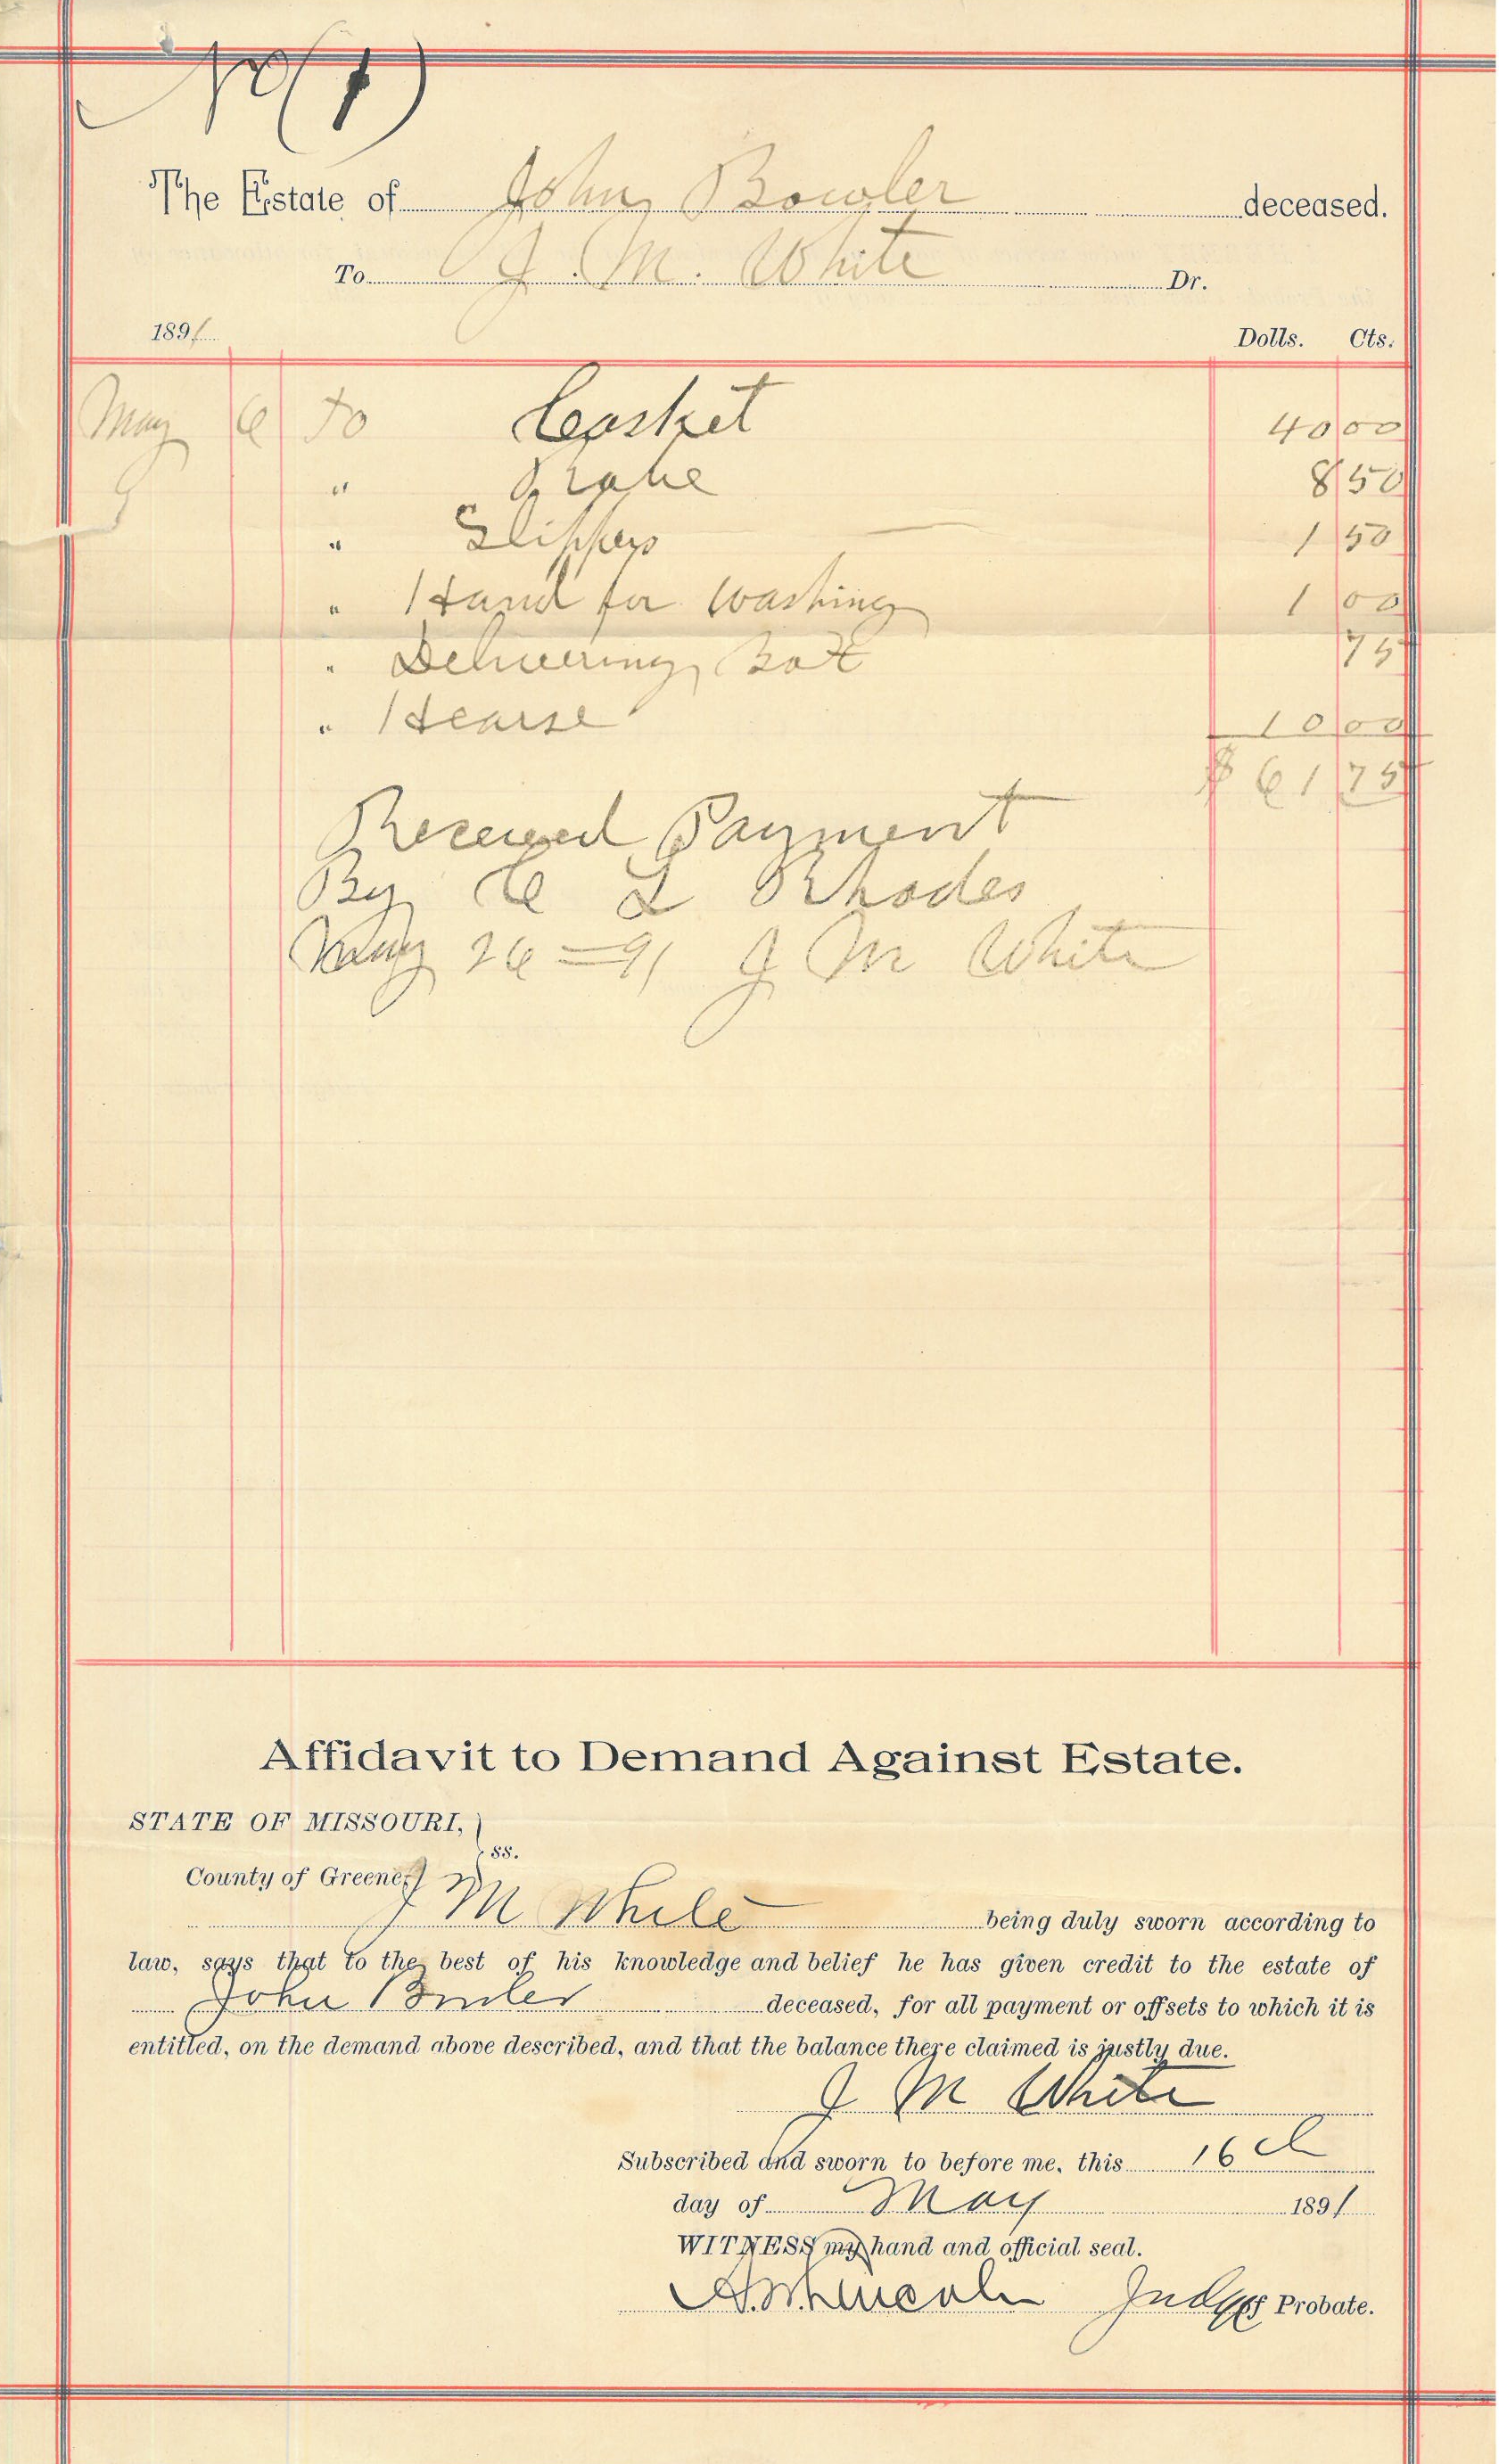 No (1)
The Estate of John Bowler deceased.
To J. M. White Dr.
1891 Dolls. Cts.
May 6 To Casket 40 00
" Robe 8 50
" Slippers 1 50
" Hand for Washing 1 00
" Delivering Box 75
" Hearse 10 00
$ 61 75
Received Payment
By C L Rhodes
May 26 = 91 J M White
Affidavit to Demand Against Estate.
STATE OF MISSOURI, }
ss.
County of Greene,
J M White being duly sworn according to
law, says that to the best of his knowledge and belief he has given credit to the estate of
John Bowler deceased, for all payment or offsets to which it is
entitled, on the demand above described, and that the balance there claimed is justly due.
J M White
Subscribed and sworn to before me, this 16th
day of May 1891
WITNESS my hand and official seal.
Lincoln Judge of Probate.